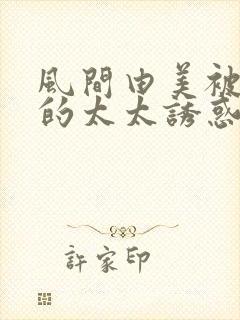 風間由美被
的太太誘惑
許家印